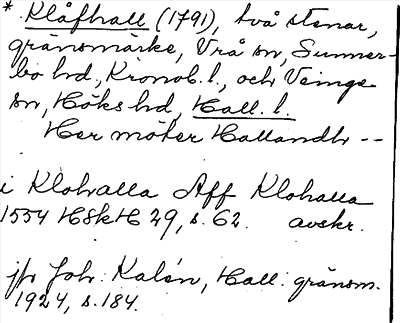 * Klåfhall (1791), två stenar,
gränsmärke, Vrå sn, Sunner-
bo hd, Kronob. l., och Veinge
sn, Höks hd, Hall. l.
Her möter Hallandh --
i Klohalla Aff Klohalla
1554 HSkH 29, s. 62. avskr.
jfr Joh. Kalén, Hall. gränsm.
1924, s. 184.